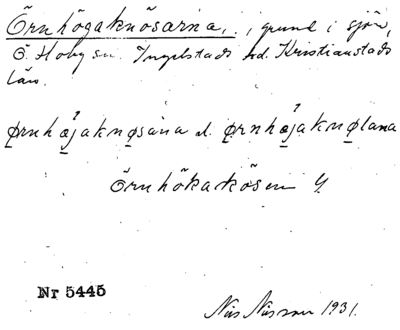 Örnhögaknösarna, grund i sjön,
Ö. Hoby sn. Ingelstads hd. Kristianstads
län.
ørnhøjaknøsana el. ørnhøjaknølana
Örnhökakösen
Nr 5445
Nils Nilsson 1931.